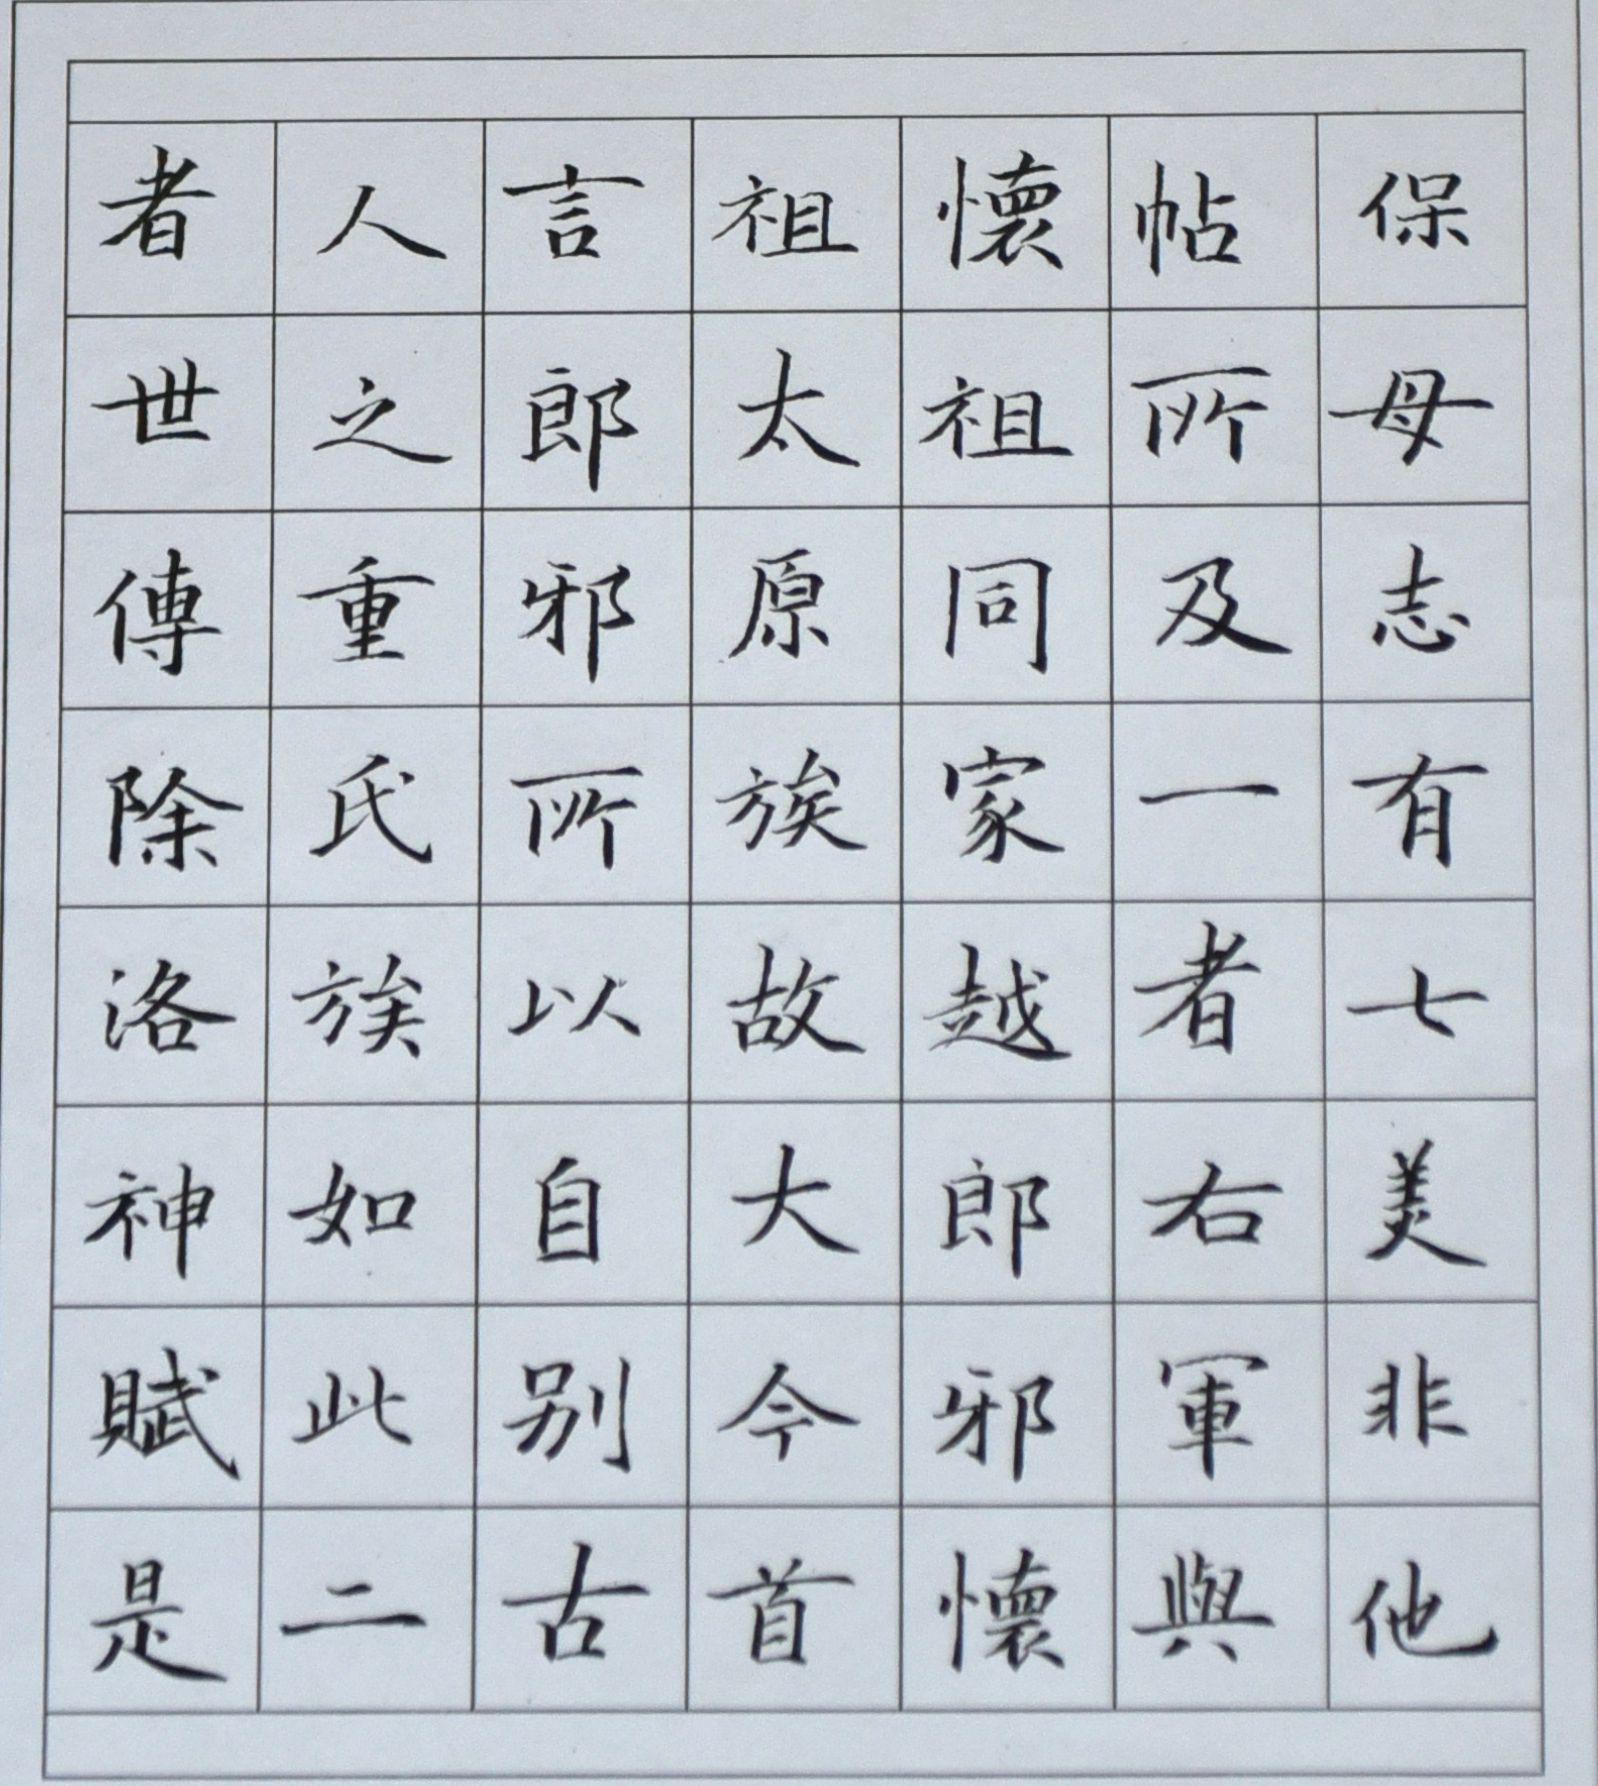 保母志有七美非他
帖所及一者右軍與
懷祖同家越郎邪懷
祖太原族故大今首
言郎邪所以自别古
人之重氏族如此二
者世傳除洛神賦是